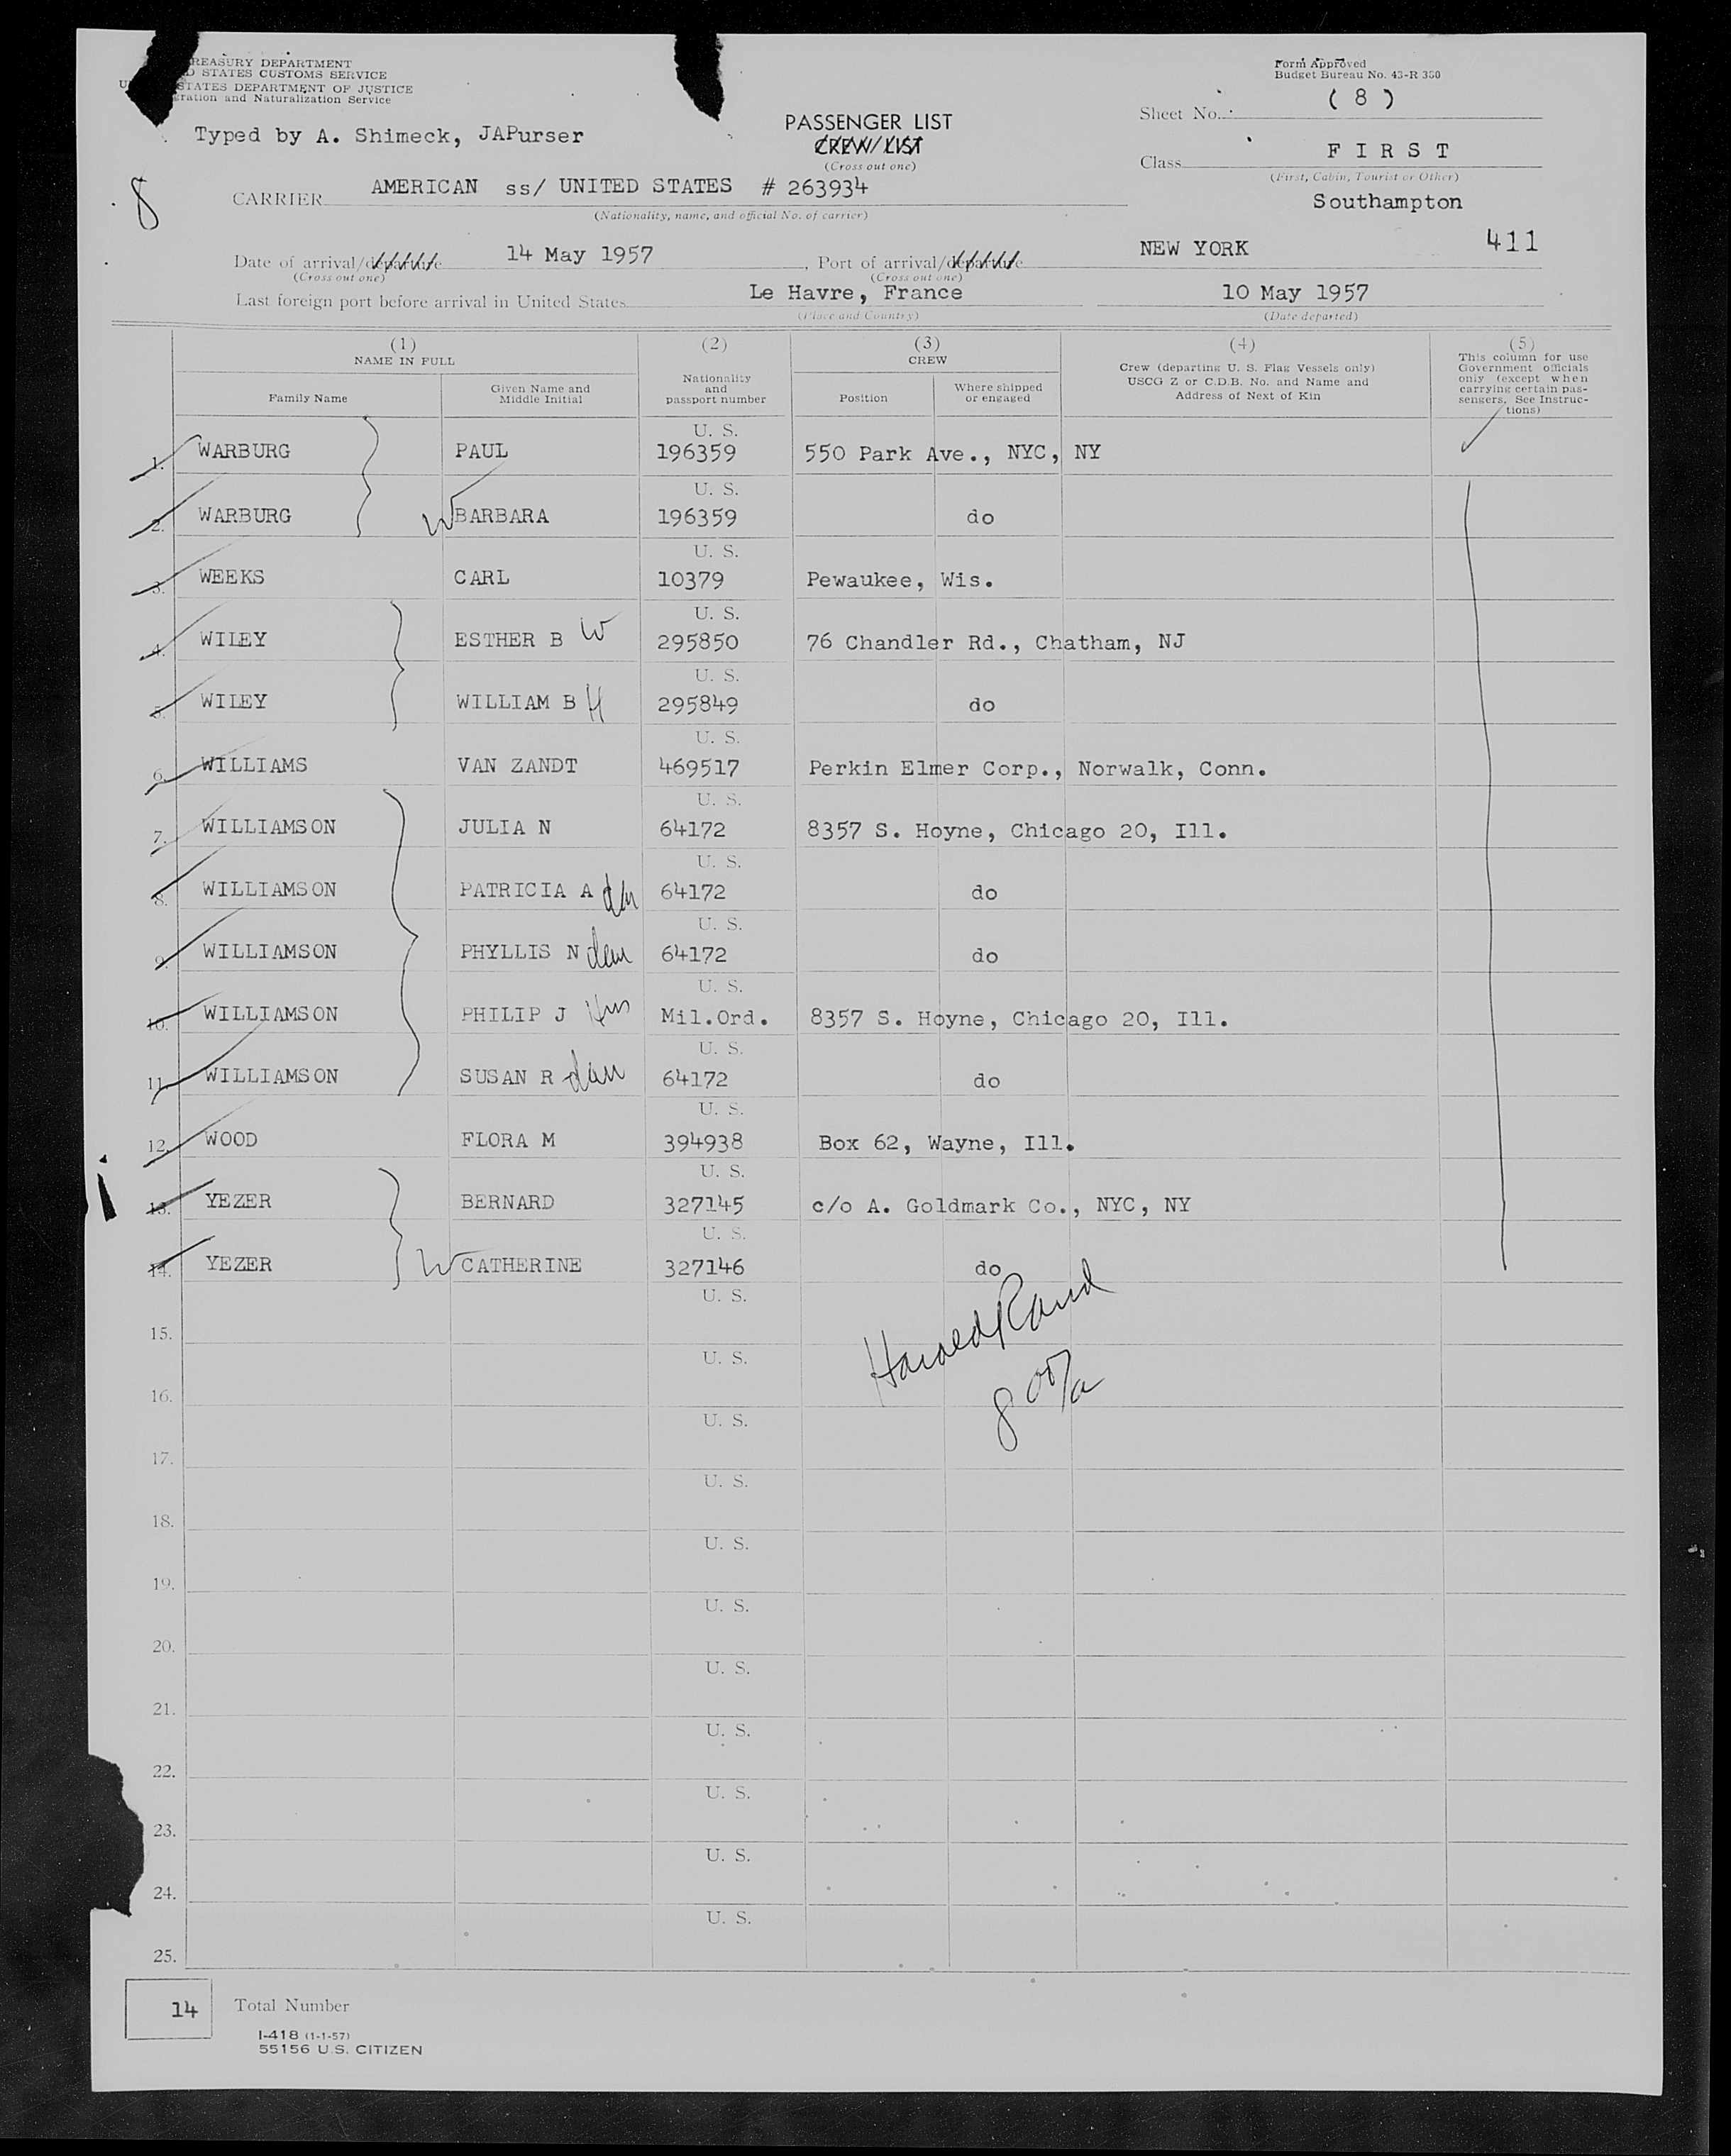 REASURY DEPARTMENT
D STATES CUSTOMS SERVICE
STATES DEPARTMENT OF JUSTICE
ration and Naturalization Service
Form Approved
Budget Bureau No. 43-R 350
Typed by A. Shimeck, JAPurser
PASSENGER LIST
CREW LIST
(Cross out one)
Sheet No. ( 8 )
Class F I R S T
(First, Cabin, Tourist or Other)
8
CARRIER AMERICAN ss/ UNITED STATES # 263934
(Nationality, name, and official No. of carrier)
Southampton
Date of arrival/departure 14 May 1957, Port of arrival/departure NEW YORK 411
(Cross out one) (Cross out one)
Last foreign port before arrival in United States Le Havre, France 10 May 1957
(Place and Country) (Date departed)
(1) NAME IN FULL
Family Name
Given Name and Middle Initial
(2)
Nationality and passport number
(3) CREW
Position
Where shipped or engaged
(4)
Crew (departing U. S. Flag Vessels only)
USCG Z or C.D.B. No. and Name and
Address of Next of Kin
(5)
This column for use
Government officials
only (except when
carrying certain pas-
sengers. See Instruc-
tions)
1. WARBURG PAUL U. S. 196359 550 Park Ave., NYC, NY
2. WARBURG W BARBARA U. S. 196359 do
3. WEEKS CARL U. S. 10379 Pewaukee, Wis.
4. WILEY ESTHER B W U. S. 295850 76 Chandler Rd., Chatham, NJ
5. WILEY WILLIAM B H U. S. 295849 do
6. WILLIAMS VAN ZANDT U. S. 469517 Perkin Elmer Corp., Norwalk, Conn.
7. WILLIAMSON JULIA N U. S. 64172 8357 S. Hoyne, Chicago 20, Ill.
8. WILLIAMSON PATRICIA A U. S. 64172 do
9. WILLIAMSON PHYLLIS N U. S. 64172 do
10. WILLIAMSON PHILIP J Hus U. S. Mil.Ord. 8357 S. Hoyne, Chicago 20, Ill.
11. WILLIAMSON SUSAN R U. S. 64172 do
12. WOOD FLORA M U. S. 394938 Box 62, Wayne, Ill.
13. YEZER BERNARD U. S. 327145 c/o A. Goldmark Co., NYC, NY
14. YEZER W CATHERINE U. S. 327146 do
15. U. S.
Harold Rand
16. U. S.
17. U. S.
18. U. S.
19. U. S.
20. U. S.
21. U. S.
22. U. S.
23. U. S.
24. U. S.
25. U. S.
14 Total Number
I-418 (1-1-57)
55156 U.S. CITIZEN